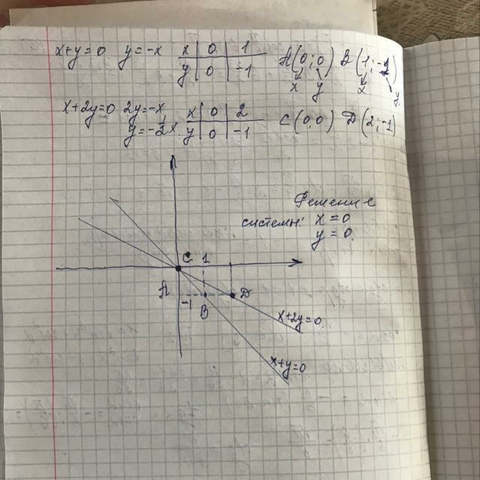 x+y=0 y=-x x | 0 | 1 A(0;0) B(1;-1)
y | 0 | -1 x y x y
x+2y=0 2y=-x x | 0 | 2 C(0,0) D(2;-1)
y=-2x y | 0 | -1
Решение
системы: x=0
y=0
C 1
A -1 B D
x+2y=0
x+y=0